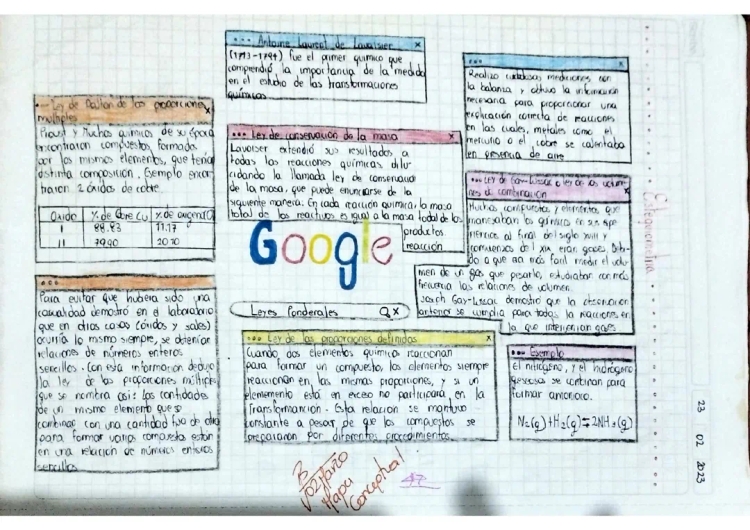 Estequiometria
23 02 2023
Antoine Laurent de Lavoisier x
(1743-1794) fue el primer químico que
comprendió la importancia de la medida
en el estudio de las transformaciones
químicas
x
Realizo cuidadosas mediciones con
la balanza y obtuvo la información
necesaria para proporcionar una
explicación correcta de reacciones
en las cuales, metales como el
mercurio o el cobre se calentaba
en presencia de aire
Ley de Dalton de las proporciones x
multiples
Proust y Muchos quimicos de su época
encontraron compuestos formados
por los mismos elementos, que tenía
distinta composición. Ejemplo encon
traron 2 óxidos de cobre
Oxido % de Cobre Cu % de oxigeno(O)
I 88.83 11.17
II 79.90 20.10
Ley de conservación de la masa x
Lavoiser extendió sus resultados a
todas las reacciones químicas, dilu-
cidando la llamada ley de conservació
de la masa, que puede enunciarse de la
siguiente manera: En cada reacción química, la masa
total de los reactivos es igual a la masa total de los
productos
reacción
Ley de Gay-Lussac o ley de los volúme-
nes de combinación x
Muchos compuestos y elementos que
manejaban los químicos en
al final del siglo XVIII y
comienzos del XIX eran gases. Debi-
do a que era más facil medir el volu-
men de un gas que pesarlo, estudiaban con más
frecuencia las relaciones de volumen.
Joseph Gay-Lussac demostró que la observación
anterior se cumplía para todas la reacciones en
la que intervenían gases
Google
Leyes Ponderales x
Para evitar que hubiera sido una
casualidad demostró en el laboratorio
que en otros casos (óxidos y sales)
ocurría lo mismo siempre, se obtenían
relaciones de números enteros
sencillos. Con esta información dedujo
la ley de las proporciones múltiples
que se nombra así: las cantidades
de un mismo elemento que se
combinan con una cantidad fija de otro
para formar varios compuesto están
en una relación de números enteros
sencillos
Ley de las proporciones definidas x
Cuando dos elementos químicos reaccionan
para formar un compuesto los elementos siempre
reaccionan en las mismas proporciones, y si un
elemento está en exceso no participará en la
Transformación. Esta relación se mantuvo
constante a pesar de que los compuestos se
prepararon por diferentes procedimientos.
Ejemplo
el nitrógeno, y el hidrógeno
gaseosos se combinan para
formar amoniaco.
N₂(g)+H₂(g)⇌2NH₃(g)
3
/02/Marzo
Mapa
Conceptual